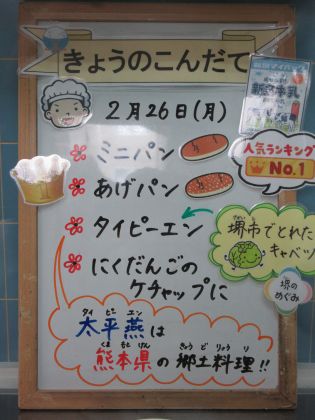 きょうのこんだて
2月26日(月)
ミニパン
あげパン
人気ランキング
No.1
タイピーエン
堺市でとれた
キャベツ
堺の
めぐみ
にくだんごの
ケチャップに
タイ ピー エン
太平燕は
くま もと けん きょう ど りょう り
熊本県の郷土料理!!